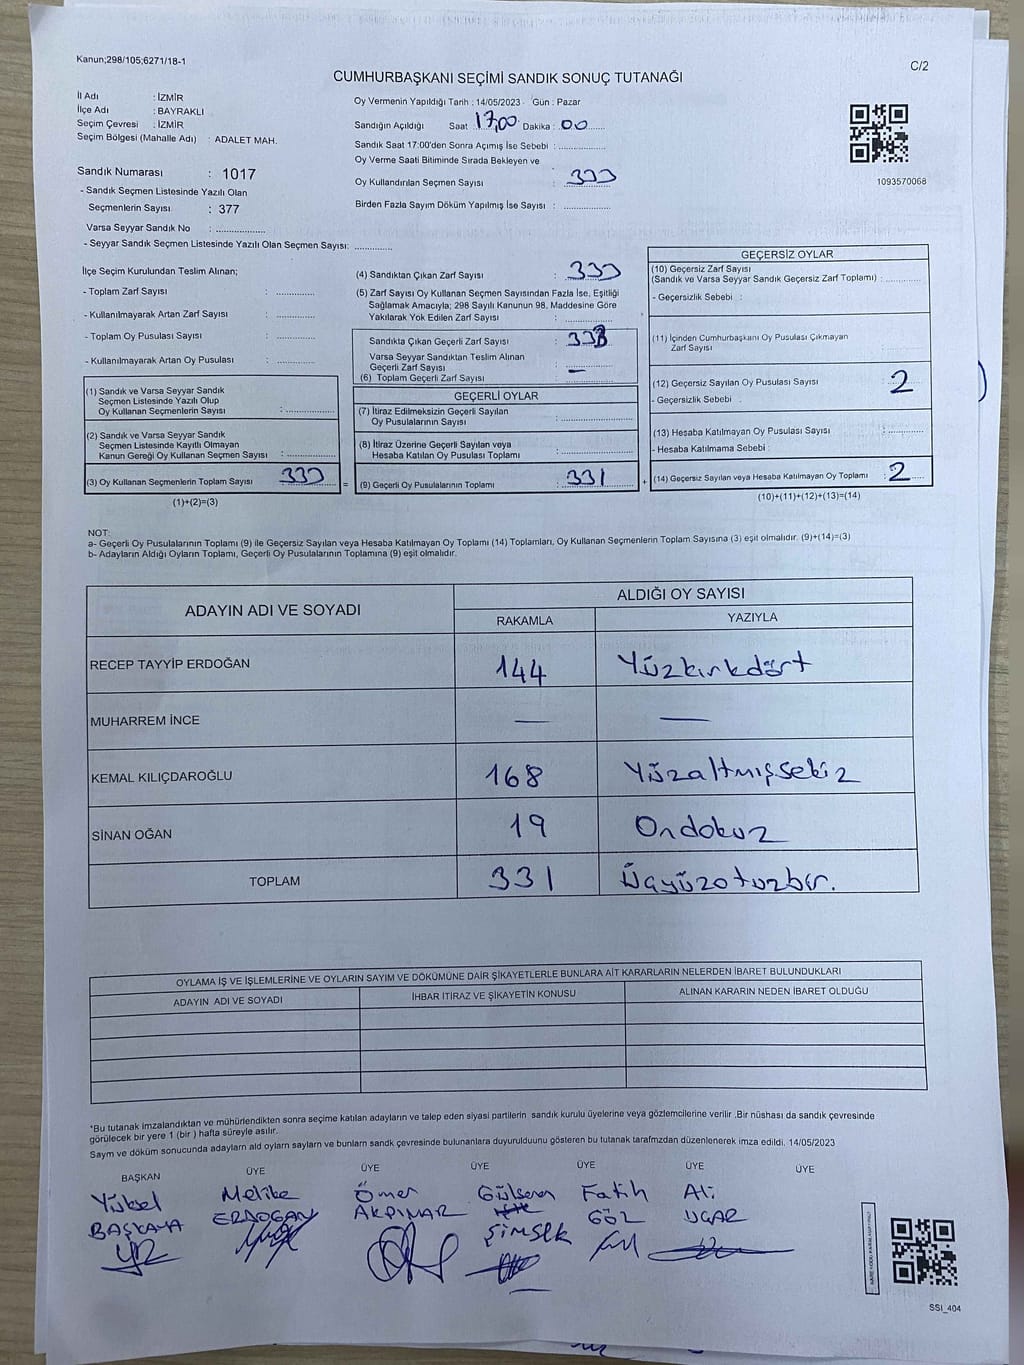 Kanun;298/105;6271/18-1
C/2
CUMHURBAŞKANI SEÇİMİ SANDIK SONUÇ TUTANAĞI
İl Adı : İZMİR
İlçe Adı : BAYRAKLI
Seçim Çevresi : İZMİR
Seçim Bölgesi (Mahalle Adı) : ADALET MAH.
Sandık Numarası : 1017
- Sandık Seçmen Listesinde Yazılı Olan
Seçmenlerin Sayısı : 377
Varsa Seyyar Sandık No : ..................
- Seyyar Sandık Seçmen Listesinde Yazılı Olan Seçmen Sayısı: ..............
Oy Vermenin Yapıldığı Tarih : 14/05/2023 Gün : Pazar
Sandığın Açıldığı Saat : 17,00 Dakika : 00
Sandık Saat 17:00'den Sonra Açımış İse Sebebi : ................
Oy Verme Saati Bitiminde Sırada Bekleyen ve
Oy Kullandırılan Seçmen Sayısı : 333
Birden Fazla Sayım Döküm Yapılmış İse Sayısı : ................
1093570068
İlçe Seçim Kurulundan Teslim Alınan;
- Toplam Zarf Sayısı : .............
- Kullanılmayarak Artan Zarf Sayısı : .............
- Toplam Oy Pusulası Sayısı : .............
- Kullanılmayarak Artan Oy Pusulası : .............
(1) Sandık ve Varsa Seyyar Sandık
Seçmen Listesinde Yazılı Olup
Oy Kullanan Seçmenlerin Sayısı : ................
(2) Sandık ve Varsa Seyyar Sandık
Seçmen Listesinde Kayıtlı Olmayan
Kanun Gereği Oy Kullanan Seçmen Sayısı : ................
(3) Oy Kullanan Seçmenlerin Toplam Sayısı 333
(1)+(2)=(3)
(4) Sandıktan Çıkan Zarf Sayısı : 333
(5) Zarf Sayısı Oy Kullanan Seçmen Sayısından Fazla İse, Eşitliği
Sağlamak Amacıyla; 298 Sayılı Kanunun 98. Maddesine Göre
Yakılarak Yok Edilen Zarf Sayısı : ................
Sandıkta Çıkan Geçerli Zarf Sayısı : 333
Varsa Seyyar Sandıktan Teslim Alınan
Geçerli Zarf Sayısı : —
(6) Toplam Geçerli Zarf Sayısı : ................
GEÇERLİ OYLAR
(7) İtiraz Edilmeksizin Geçerli Sayılan
Oy Pusulalarının Sayısı : ................
(8) İtiraz Üzerine Geçerli Sayılan veya
Hesaba Katılan Oy Pusulası Toplamı : ................
= (9) Geçerli Oy Pusulalarının Toplamı : 331
GEÇERSİZ OYLAR
(10) Geçersiz Zarf Sayısı
(Sandık ve Varsa Seyyar Sandık Geçersiz Zarf Toplamı) : ..........
- Geçersizlik Sebebi :
(11) İçinden Cumhurbaşkanı Oy Pusulası Çıkmayan
Zarf Sayısı
(12) Geçersiz Sayılan Oy Pusulası Sayısı 2
- Geçersizlik Sebebi :
(13) Hesaba Katılmayan Oy Pusulası Sayısı : ..........
- Hesaba Katılmama Sebebi :
+ (14) Geçersiz Sayılan veya Hesaba Katılmayan Oy Toplamı : 2
(10)+(11)+(12)+(13)=(14)
NOT:
a- Geçerli Oy Pusulalarının Toplamı (9) ile Geçersiz Sayılan veya Hesaba Katılmayan Oy Toplamı (14) Toplamları, Oy Kullanan Seçmenlerin Toplam Sayısına (3) eşit olmalıdır. (9)+(14)=(3)
b- Adayların Aldığı Oyların Toplamı, Geçerli Oy Pusulalarının Toplamına (9) eşit olmalıdır.
ADAYIN ADI VE SOYADI ALDIĞI OY SAYISI
RAKAMLA YAZIYLA
RECEP TAYYİP ERDOĞAN 144 Yüzkırkdört
MUHARREM İNCE — —
KEMAL KILIÇDAROĞLU 168 Yüzaltmışsekiz
SİNAN OĞAN 19 Ondokuz
TOPLAM 331 Üçyüzotuzbir.
OYLAMA İŞ VE İŞLEMLERİNE VE OYLARIN SAYIM VE DÖKÜMÜNE DAİR ŞİKAYETLERLE BUNLARA AİT KARARLARIN NELERDEN İBARET BULUNDUKLARI
ADAYIN ADI VE SOYADI İHBAR İTİRAZ VE ŞİKAYETİN KONUSU ALINAN KARARIN NEDEN İBARET OLDUĞU
*Bu tutanak imzalandıktan ve mühürlendikten sonra seçime katılan adayların ve talep eden siyasi partilerin sandık kurulu üyelerine veya gözlemcilerine verilir .Bir nüshası da sandık çevresinde
görülecek bir yere 1 (bir ) hafta süreyle asılır.
Sayım ve döküm sonucunda adayların ald oyların sayları ve bunların sandk çevresinde bulunanlara duyurulduunu gösteren bu tutanak tarafmzdan düzenlenerek imza edildi. 14/05/2023
BAŞKAN ÜYE ÜYE ÜYE ÜYE ÜYE ÜYE
Yüksel Melike Ömer Gülseren Fatih Ali
BAŞKAYA ERDOGAN AKPINAR ŞİMŞEK GÖZ UÇAR
SSI_404